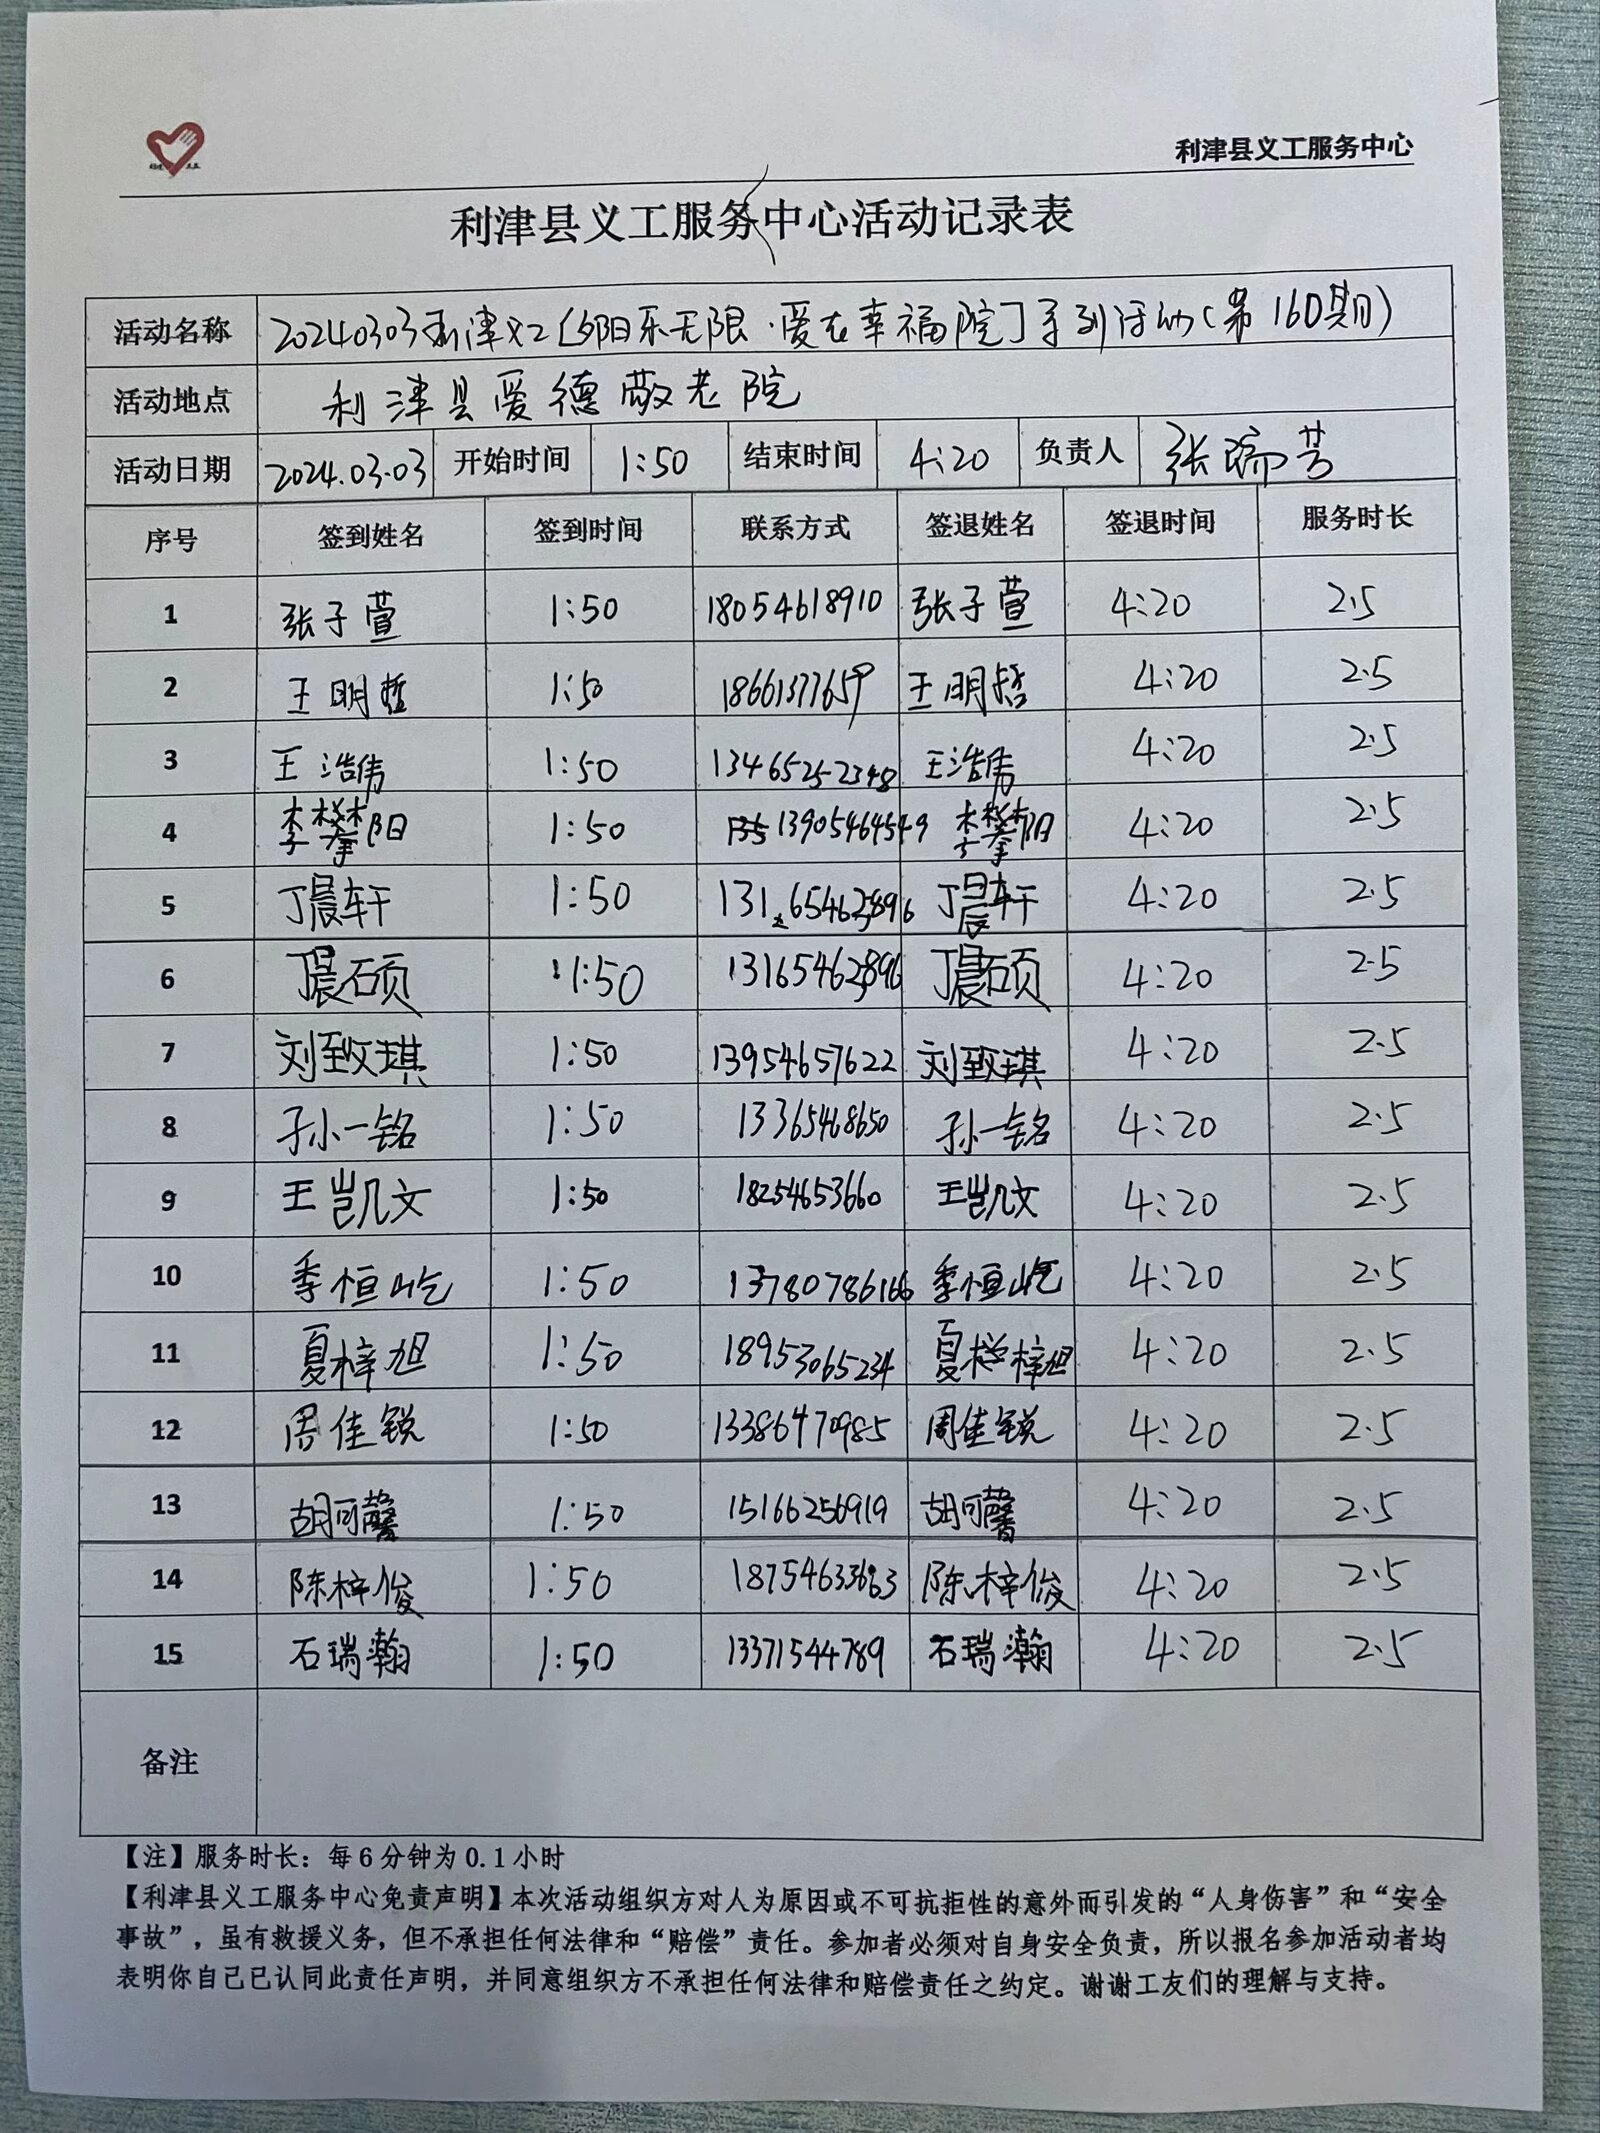 利津县义工服务中心
利津县义工服务中心活动记录表
活动名称 20240303利津义工[夕阳乐无限·爱在幸福院]系列活动(第160期)
活动地点 利津县爱德敬老院
活动日期 2024.03.03 开始时间 1:50 结束时间 4:20 负责人 张瑞芳
序号 签到姓名 签到时间 联系方式 签退姓名 签退时间 服务时长
1 张子萱 1:50 18054618910 张子萱 4:20 2.5
2 王明哲 1:50 18661377659 王明哲 4:20 2.5
3 王浩伟 1:50 13465252348 王浩伟 4:20 2.5
4 李攀阳 1:50 13905464549 李攀阳 4:20 2.5
5 丁晨轩 1:50 13165462896 丁晨轩 4:20 2.5
6 丁晨硕 1:50 13165462896 丁晨硕 4:20 2.5
7 刘致琪 1:50 13954657622 刘致琪 4:20 2.5
8 孙一铭 1:50 13365468650 孙一铭 4:20 2.5
9 王岂凡文 1:50 18254653660 王岂凡文 4:20 2.5
10 季恒屹 1:50 13780786166 季恒屹 4:20 2.5
11 夏梓旭 1:50 18953065234 夏梓旭 4:20 2.5
12 周佳锐 1:50 13386470985 周佳锐 4:20 2.5
13 胡可馨 1:50 15166256919 胡可馨 4:20 2.5
14 陈梓俊 1:50 18754633663 陈梓俊 4:20 2.5
15 石瑞瀚 1:50 13371544789 石瑞瀚 4:20 2.5
备注
【注】服务时长：每6分钟为0.1小时
【利津县义工服务中心免责声明】本次活动组织方对人为原因或不可抗拒性的意外而引发的“人身伤害”和“安全
事故”，虽有救援义务，但不承担任何法律和“赔偿”责任。参加者必须对自身安全负责，所以报名参加活动者均
表明你自己已认同此责任声明，并同意组织方不承担任何法律和赔偿责任之约定。谢谢工友们的理解与支持。